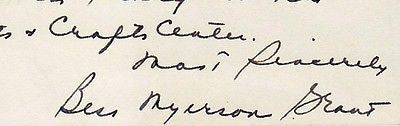 & Crafts Center.
Most Sincerely
Bess Myerson Grant